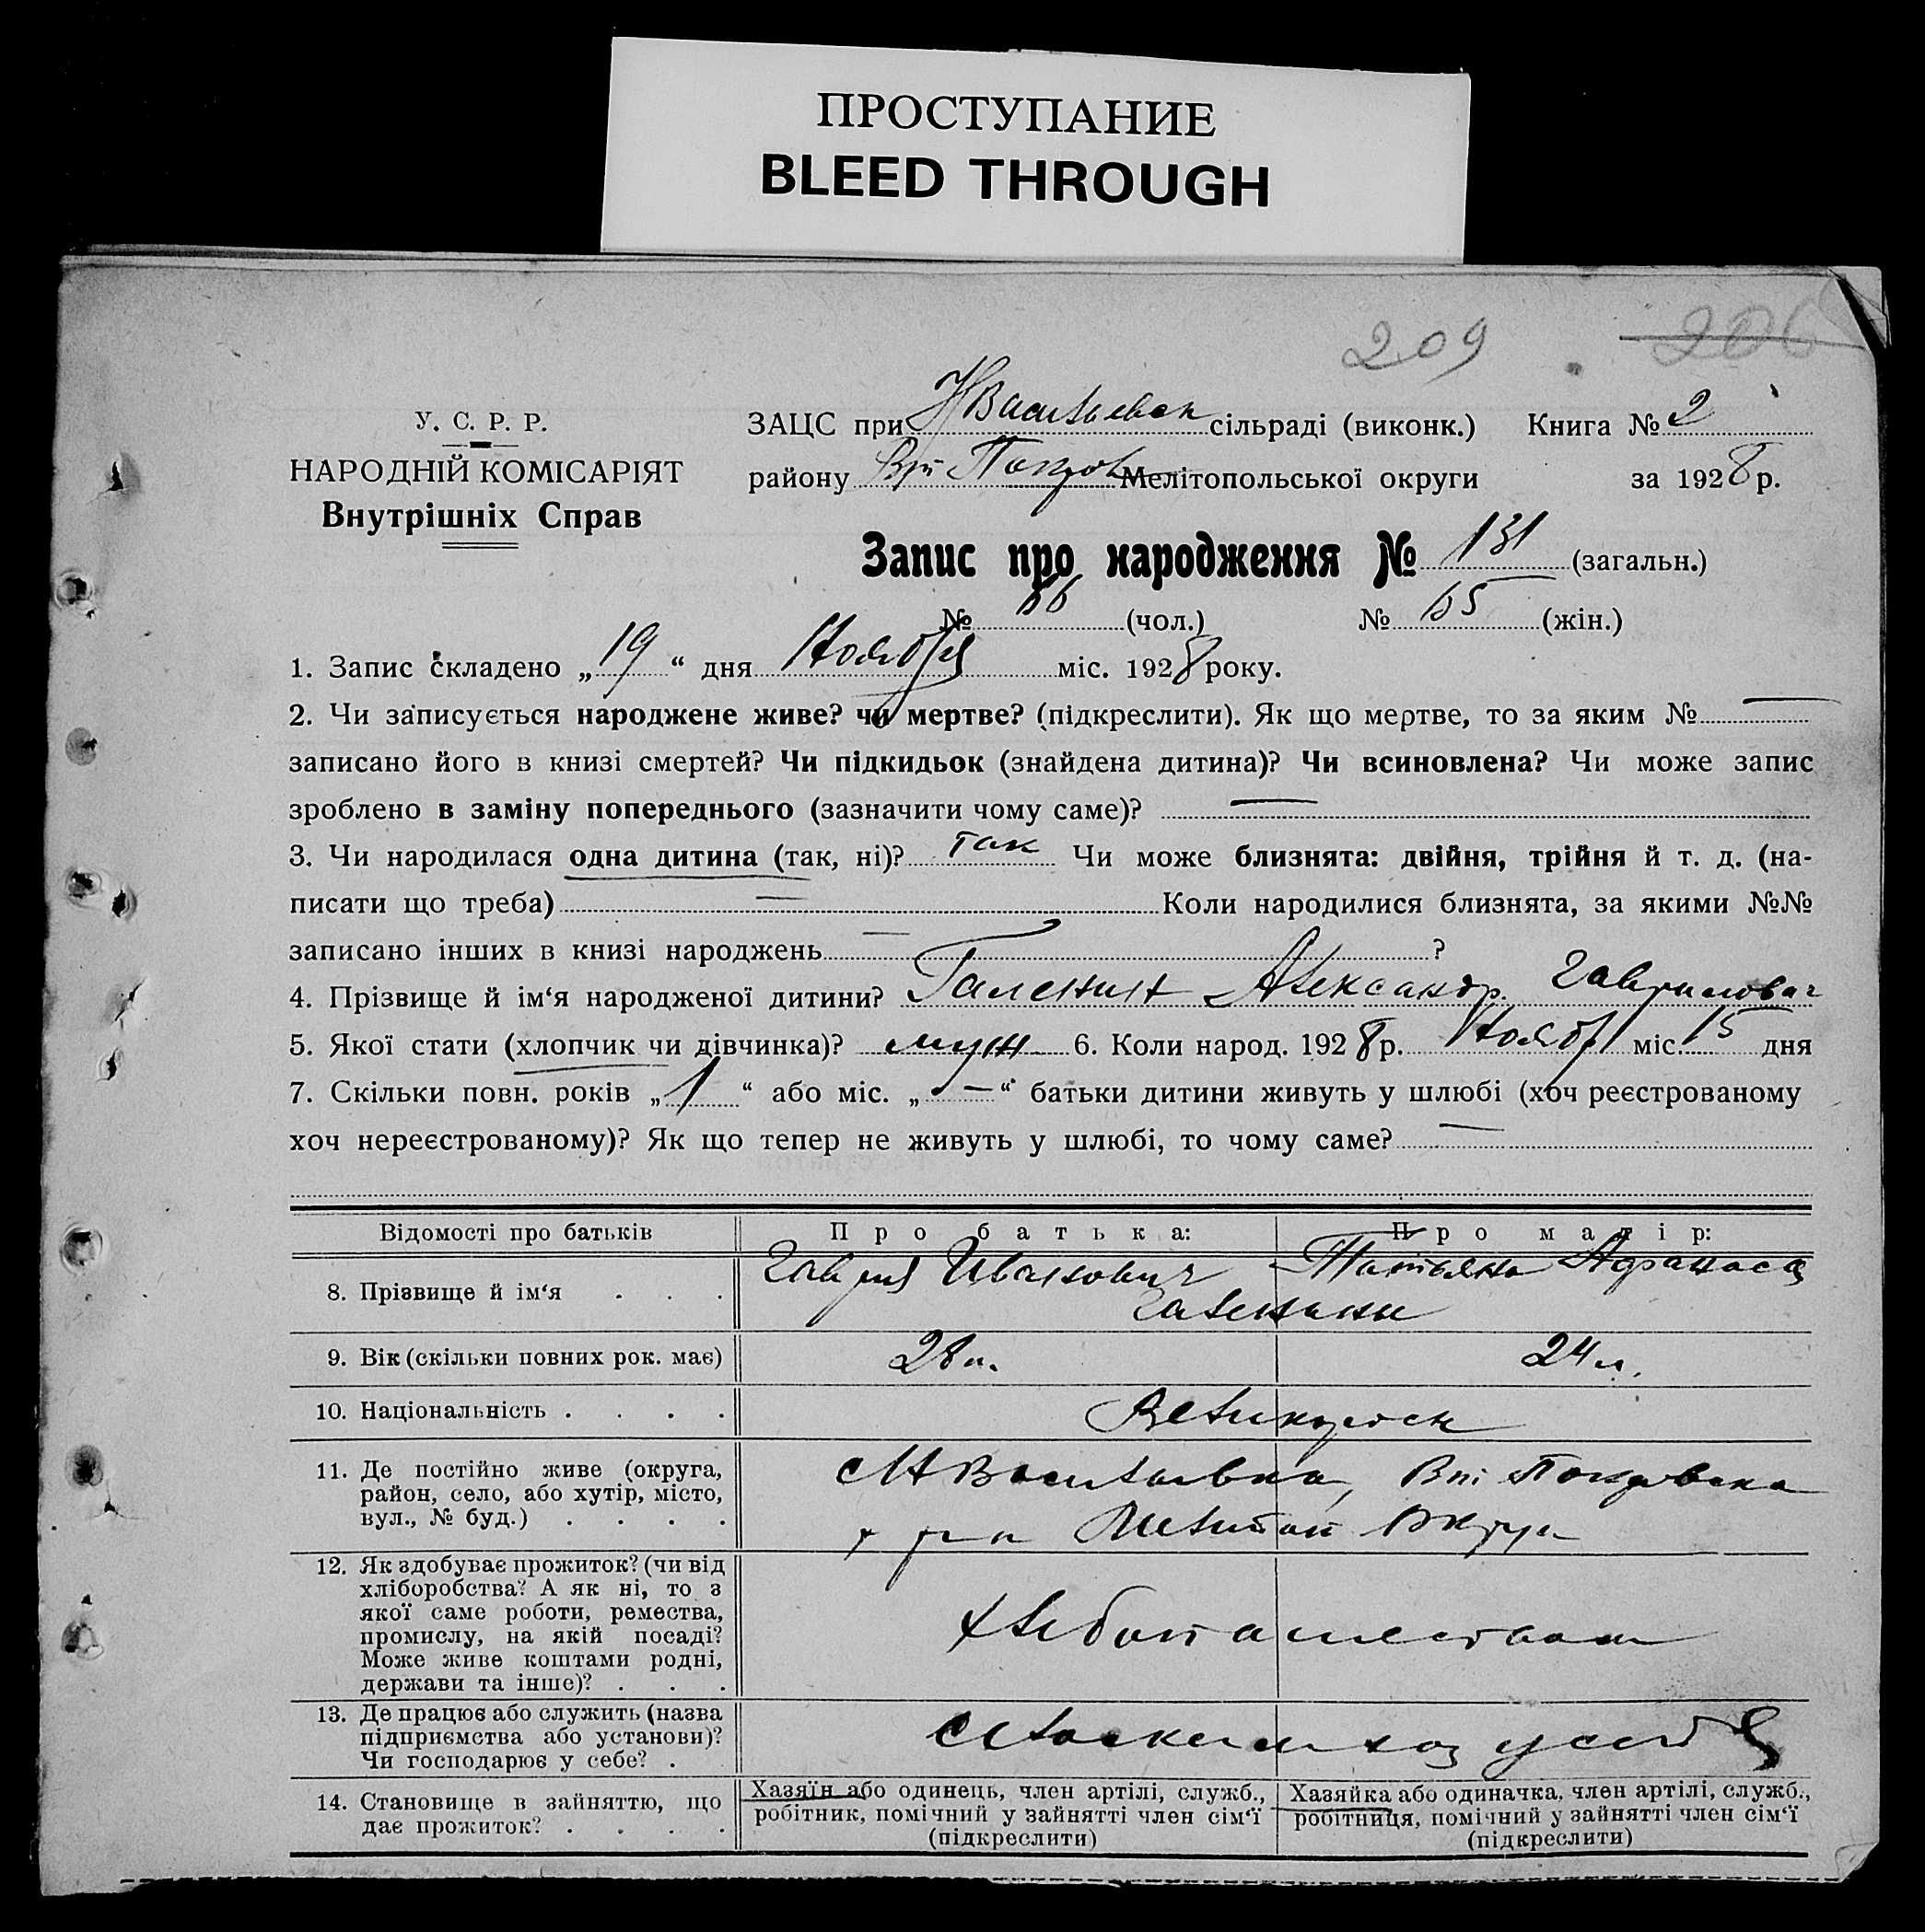 ПРОСТУПАНИЕ
BLEED THROUGH
209 206
У. С. Р. Р.
НАРОДНІЙ КОМІСАРІЯТ
Внутрішніх Справ
ЗАЦС при НВасильевск сільраді (виконк.) Книга № 2
району Вт Покров Мелітопольської округи за 1928 р.
Запис про народження № 131 (загальн.)
№ 66 (чол.) № 65 (жін.)
1. Запис складено „19“ дня Ноября міс. 1928 року.
2. Чи записується народжене живе? чи мертве? (підкреслити). Як що мертве, то за яким № —
записано його в книзі смертей? Чи підкидьок (знайдена дитина)? Чи всиновлена? Чи може запис
зроблено в заміну попереднього (зазначити чому саме)? —
3. Чи народилася одна дитина (так, ні)? так Чи може близнята: двійня, трійня й т. д. (на-
писати що треба) — Коли народилися близнята, за якими №№
записано інших в книзі народжень — ?
4. Прізвище й ім‘я народженої дитини? Галенин Александр Гаврилович
5. Якої стати (хлопчик чи дівчинка)? муж 6. Коли народ. 1928 р. Ноябр міс. 15 дня
7. Скільки повн. років „1“ або міс. „—“ батьки дитини живуть у шлюбі (хоч реєстрованому
хоч нереєстрованому)? Як що тепер не живуть у шлюбі, то чому саме? —
Відомості про батьків Про батька: Про матір:
8. Прізвище й ім‘я . . . Гаврил Иванович Татьяна Афанас
Галенины
9. Вік (скільки повних рок. має) 28 л. 24 л.
10. Національність . . . . Великоросн
11. Де постійно живе (округа,
район, село, або хутір, місто,
вул., № буд.) . . . .
с НВасильевка, Вт Покровска
р на Мелитоп Округи
12. Як здобуває прожиток? (чи від
хліборобства? А як ні, то з
якої саме роботи, ремества,
промислу, на якій посаді?
Може живе коштами родні,
держави та інше)? . . .
Хлебопашеством
13. Де працює або служить (назва
підприємства або установи)?
Чи господарює у себе? .
Сельским хоз у себя
14. Становище в зайняттю, що
дає прожиток? . . . .
Хазяїн або одинець, член артілі, служб.,
робітник, помічний у зайнятті член сім‘ї
(підкреслити)
Хазяйка або одиначка, член артілі, служб.,
робітниця, помічний у зайнятті член сім‘ї
(підкреслити)